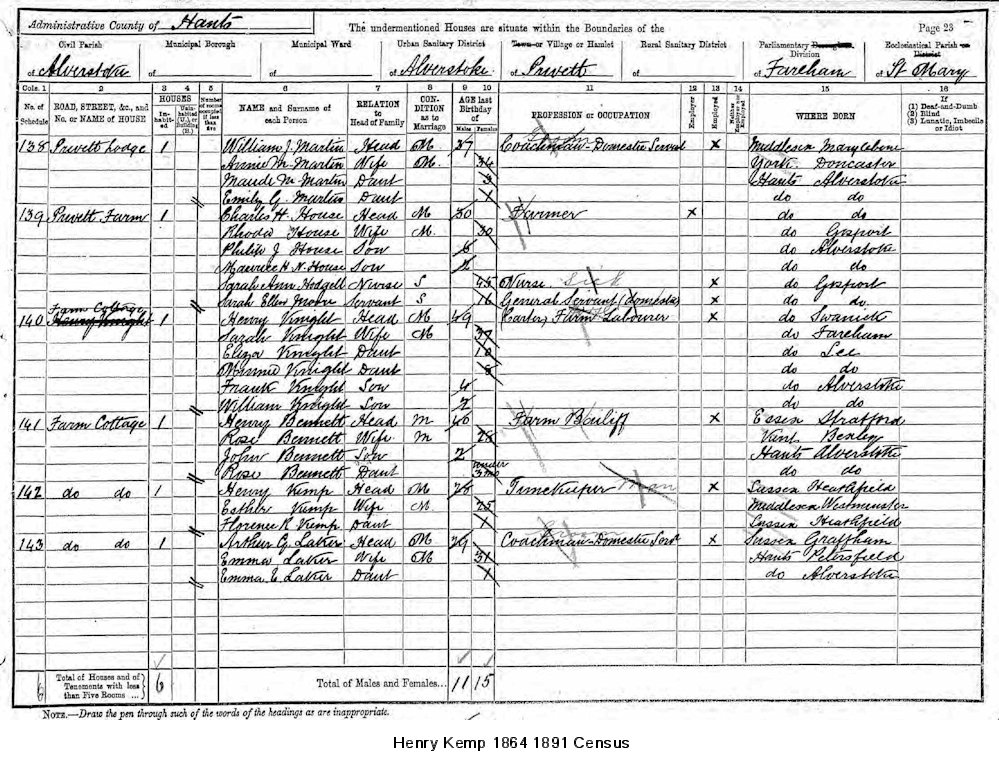 Administrative County of Hants The undermentioned Houses are situate within the Boundaries of the Page 23
Civil Parish Municipal Borough Municipal Ward Urban Sanitary District Town or Village or Hamlet Rural Sanitary District Parliamentary Borough or Division Ecclesiastical Parish or District
of Alverstoke of of of Alverstoke of Privett of of Fareham of St Mary
Cols. 1 2 3 4 5 6 7 8 9 10 11 12 13 14 15 16
No. of Schedule ROAD, STREET, &c., and No. or NAME of HOUSE HOUSES Inhabited Uninhabited (U.), or Building (B.) Number of rooms occupied if less than five NAME and Surname of each Person RELATION to Head of Family CONDITION as to Marriage AGE last Birthday of Males Females PROFESSION or OCCUPATION Employer Employed Neither Employer nor Employed WHERE BORN If (1) Deaf-and-Dumb (2) Blind (3) Lunatic, Imbecile or Idiot
138 Privett Lodge 1 William J. Martin Head M 37 Coachman-Domestic Servant x Middlesex Marylebone
Annie M. Martin Wife M. 34 York Doncaster
Maude M. Martin Daut 3 Hants Alverstoke
Emily G. Martin Daut 1 do do
139 Privett Farm 1 Charles H. House Head M 30 Farmer x do do
Rhoda House Wife M. 30 do Gosport
Philip J House Son 6 do Alverstoke
Maurice H. N. House Son 2 do do
Sarah Ann Hodgell Nurse S 45 Nurse Sick x do Gosport
Sarah Ellen Moore Servant S 16 General Servant (domestic) x do do
140 Farm Cottage Henry Knight 1 Henry Knight Head M 49 Carter, Farm Labourer x do Swanick
Sarah Knight Wife M 37 do Fareham
Eliza Knight Daut 10 do Lee
Minnie Knight Daut 8 do do
Frank Knight Son 4 do Alverstoke
William Knight Son 2 do do
141 Farm Cottage 1 Henry Bennett Head M 40 Farm Bailiff x Essex Stratford
Rose Bennett Wife M 28 Kent Bexley
John Bennett Son 2 Hants Alverstoke
Rose Bennett Daut under 3 mo do do
142 do do 1 Henry Kemp Head M 28 Timekeeper Man x Sussex Heathfield
Esther Kemp Wife M. 25 Middlesex Westminster
Florence R Kemp Daut 1 Sussex Heathfield
143 do do 1 Arthur G Laker Head M. 29 Coachman-Domestic Servt x Sussex Graffham
Emma Laker Wife M 31 Hants Petersfield
Emma E. Laker Daut 1 do Alverstoke
6 Total of Houses and of Tenements with less than Five Rooms ... 6 Total of Males and Females... 11 15
NOTE.—Draw the pen through such of the words of the headings as are inappropriate.
Henry Kemp 1864 1891 Census